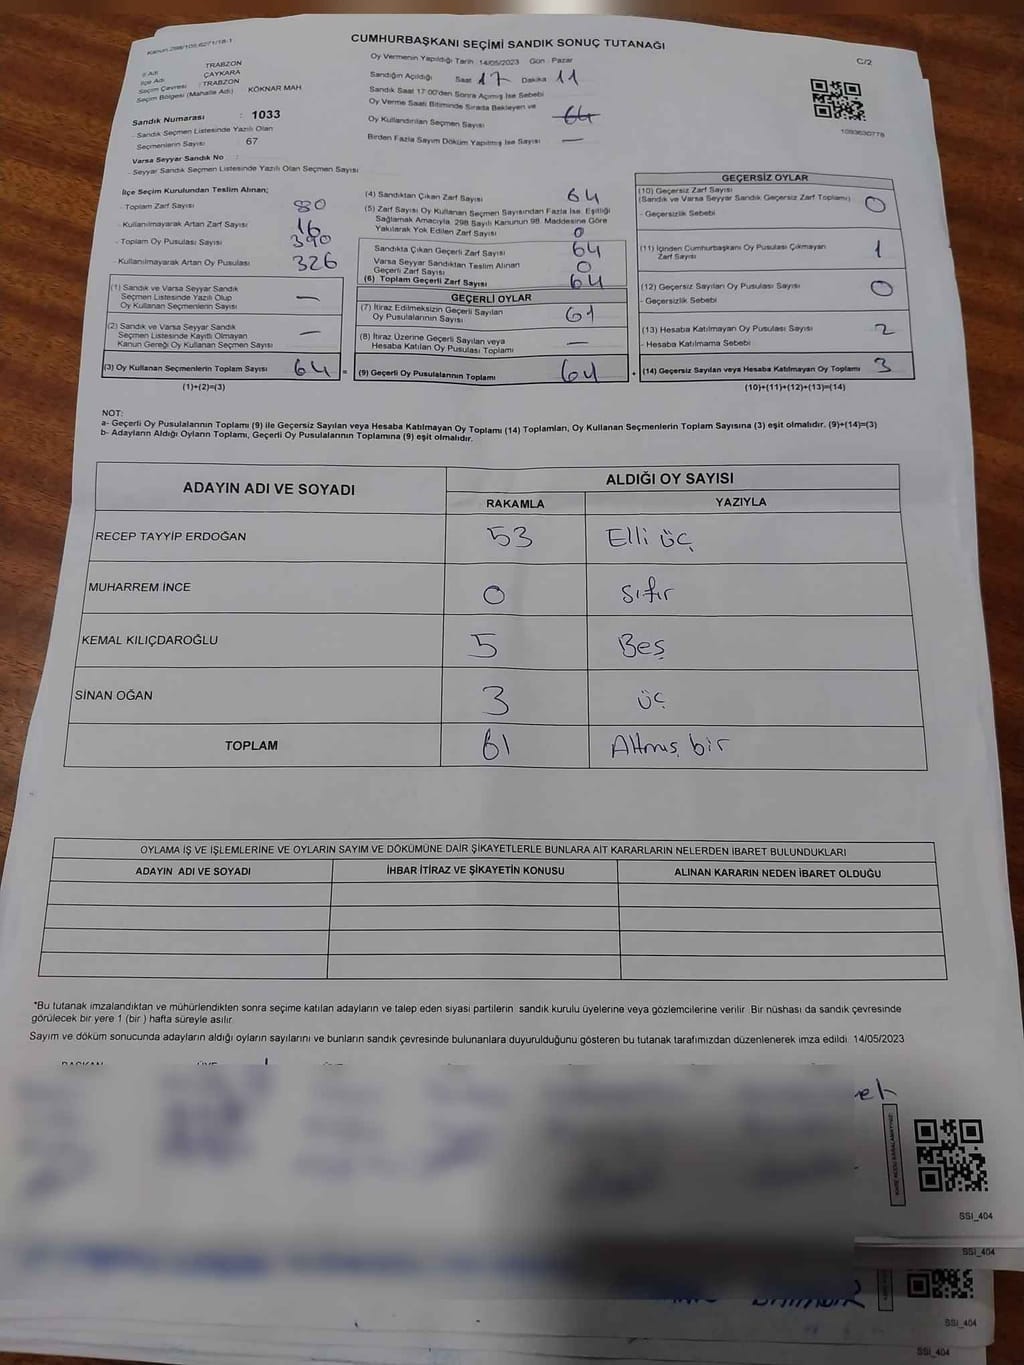 Kanun:298/105,6271/18-1
CUMHURBAŞKANI SEÇİMİ SANDIK SONUÇ TUTANAĞI
C/2
İl Adı : TRABZON
İlçe Adı : ÇAYKARA
Seçim Çevresi : TRABZON
Seçim Bölgesi (Mahalle Adı) : KÖKNAR MAH.
Sandık Numarası : 1033
- Sandık Seçmen Listesinde Yazılı Olan
Seçmenlerin Sayısı : 67
Varsa Seyyar Sandık No :
- Seyyar Sandık Seçmen Listesinde Yazılı Olan Seçmen Sayısı
Oy Vermenin Yapıldığı Tarih : 14/05/2023 Gün : Pazar
Sandığın Açıldığı Saat 17 Dakika 11
Sandık Saat 17:00'den Sonra Açılmış İse Sebebi
Oy Verme Saati Bitiminde Sırada Bekleyen ve
Oy Kullandırılan Seçmen Sayısı 64
Birden Fazla Sayım Döküm Yapılmış İse Sayısı —
1093630778
İlçe Seçim Kurulundan Teslim Alınan;
- Toplam Zarf Sayısı 80
- Kullanılmayarak Artan Zarf Sayısı 16
- Toplam Oy Pusulası Sayısı 390
- Kullanılmayarak Artan Oy Pusulası 326
(1) Sandık ve Varsa Seyyar Sandık
Seçmen Listesinde Yazılı Olup
Oy Kullanan Seçmenlerin Sayısı —
(2) Sandık ve Varsa Seyyar Sandık
Seçmen Listesinde Kayıtlı Olmayan
Kanun Gereği Oy Kullanan Seçmen Sayısı —
(3) Oy Kullanan Seçmenlerin Toplam Sayısı 64 =
(1)+(2)=(3)
(4) Sandıktan Çıkan Zarf Sayısı 64
(5) Zarf Sayısı Oy Kullanan Seçmen Sayısından Fazla İse, Eşitliği
Sağlamak Amacıyla, 298 Sayılı Kanunun 98. Maddesine Göre
Yakılarak Yok Edilen Zarf Sayısı 0
Sandıkta Çıkan Geçerli Zarf Sayısı 64
Varsa Seyyar Sandıktan Teslim Alınan
Geçerli Zarf Sayısı 0
(6) Toplam Geçerli Zarf Sayısı 64
GEÇERLİ OYLAR
(7) İtiraz Edilmeksizin Geçerli Sayılan
Oy Pusulalarının Sayısı 61
(8) İtiraz Üzerine Geçerli Sayılan veya
Hesaba Katılan Oy Pusulası Toplamı —
(9) Geçerli Oy Pusulalarının Toplamı 64 +
GEÇERSİZ OYLAR
(10) Geçersiz Zarf Sayısı
(Sandık ve Varsa Seyyar Sandık Geçersiz Zarf Toplamı) 0
- Geçersizlik Sebebi
(11) İçinden Cumhurbaşkanı Oy Pusulası Çıkmayan
Zarf Sayısı 1
(12) Geçersiz Sayılan Oy Pusulası Sayısı 0
- Geçersizlik Sebebi
(13) Hesaba Katılmayan Oy Pusulası Sayısı 2
- Hesaba Katılmama Sebebi
(14) Geçersiz Sayılan veya Hesaba Katılmayan Oy Toplamı 3
(10)+(11)+(12)+(13)=(14)
NOT:
a- Geçerli Oy Pusulalarının Toplamı (9) ile Geçersiz Sayılan veya Hesaba Katılmayan Oy Toplamı (14) Toplamları, Oy Kullanan Seçmenlerin Toplam Sayısına (3) eşit olmalıdır. (9)+(14)=(3)
b- Adayların Aldığı Oyların Toplamı, Geçerli Oy Pusulalarının Toplamına (9) eşit olmalıdır.
ADAYIN ADI VE SOYADI
ALDIĞI OY SAYISI
RAKAMLA YAZIYLA
RECEP TAYYİP ERDOĞAN 53 Elli üç
MUHARREM İNCE 0 sıfır
KEMAL KILIÇDAROĞLU 5 Beş
SİNAN OĞAN 3 üç
TOPLAM 61 Altmış bir
OYLAMA İŞ VE İŞLEMLERİNE VE OYLARIN SAYIM VE DÖKÜMÜNE DAİR ŞİKAYETLERLE BUNLARA AİT KARARLARIN NELERDEN İBARET BULUNDUKLARI
ADAYIN ADI VE SOYADI İHBAR İTİRAZ VE ŞİKAYETİN KONUSU ALINAN KARARIN NEDEN İBARET OLDUĞU
*Bu tutanak imzalandıktan ve mühürlendikten sonra seçime katılan adayların ve talep eden siyasi partilerin sandık kurulu üyelerine veya gözlemcilerine verilir. Bir nüshası da sandık çevresinde
görülecek bir yere 1 (bir ) hafta süreyle asılır.
Sayım ve döküm sonucunda adayların aldığı oyların sayılarını ve bunların sandık çevresinde bulunanlara duyurulduğunu gösteren bu tutanak tarafımızdan düzenlenerek imza edildi. 14/05/2023
SSI_404
SSI_404
SSI_404
SSI_404